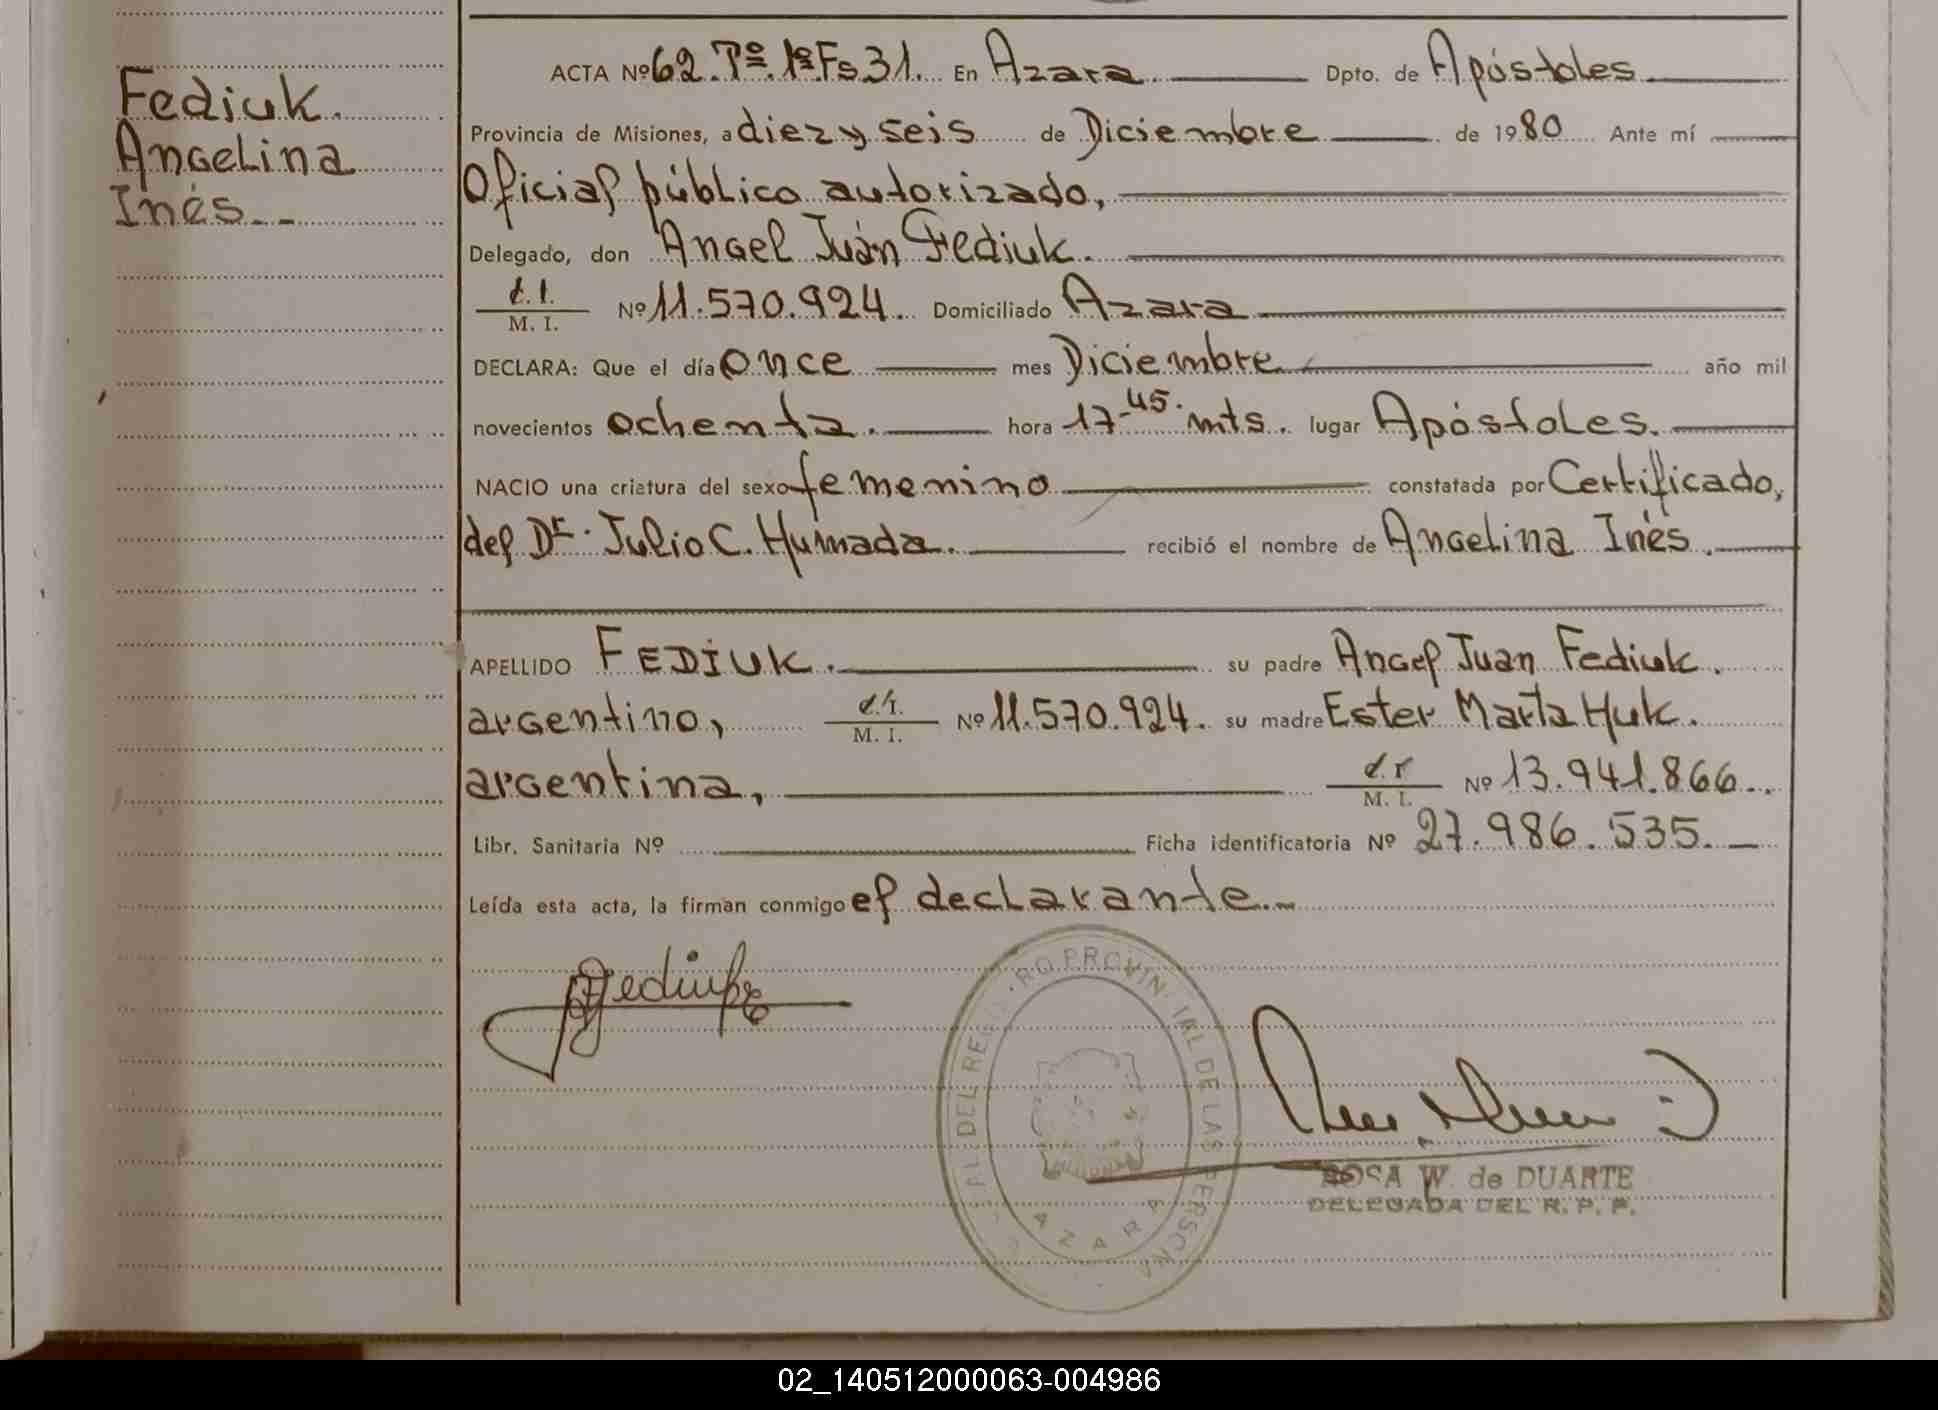 Fediuk.
Angelina
Inés.--
ACTA Nº 62. Tº. 1º Fs 31. En Azara. Dpto. de Apóstoles
Provincia de Misiones, a diez y seis de Diciembre de 1980 Ante mí
Oficial público autorizado,
Delegado, don Angel Juan Fediuk.
M. I. Nº 11.570.924. Domiciliado Azara
DECLARA: Que el día once mes Diciembre año mil
novecientos ochenta. hora 17-45. mts. lugar Apóstoles.
NACIO una criatura del sexo femenino constatada por Certificado,
del Dr. Julio C. Humada. recibió el nombre de Angelina Inés.
APELLIDO FEDIUK. su padre Angel Juan Fediuk.
argentino, M. I. Nº 11.570.924. su madre Ester Marta Huk.
argentina, M. I. Nº 13.941.866.
Libr. Sanitaria Nº Ficha identificatoria Nº 27.986.535.
Leída esta acta, la firman conmigo el declarante.-
Fediuk
PROVINCIAL DE LAS PERSONAS
AZARA
ROSA W. de DUARTE
DELEGADA DEL R. P. P.
02_140512000063-004986